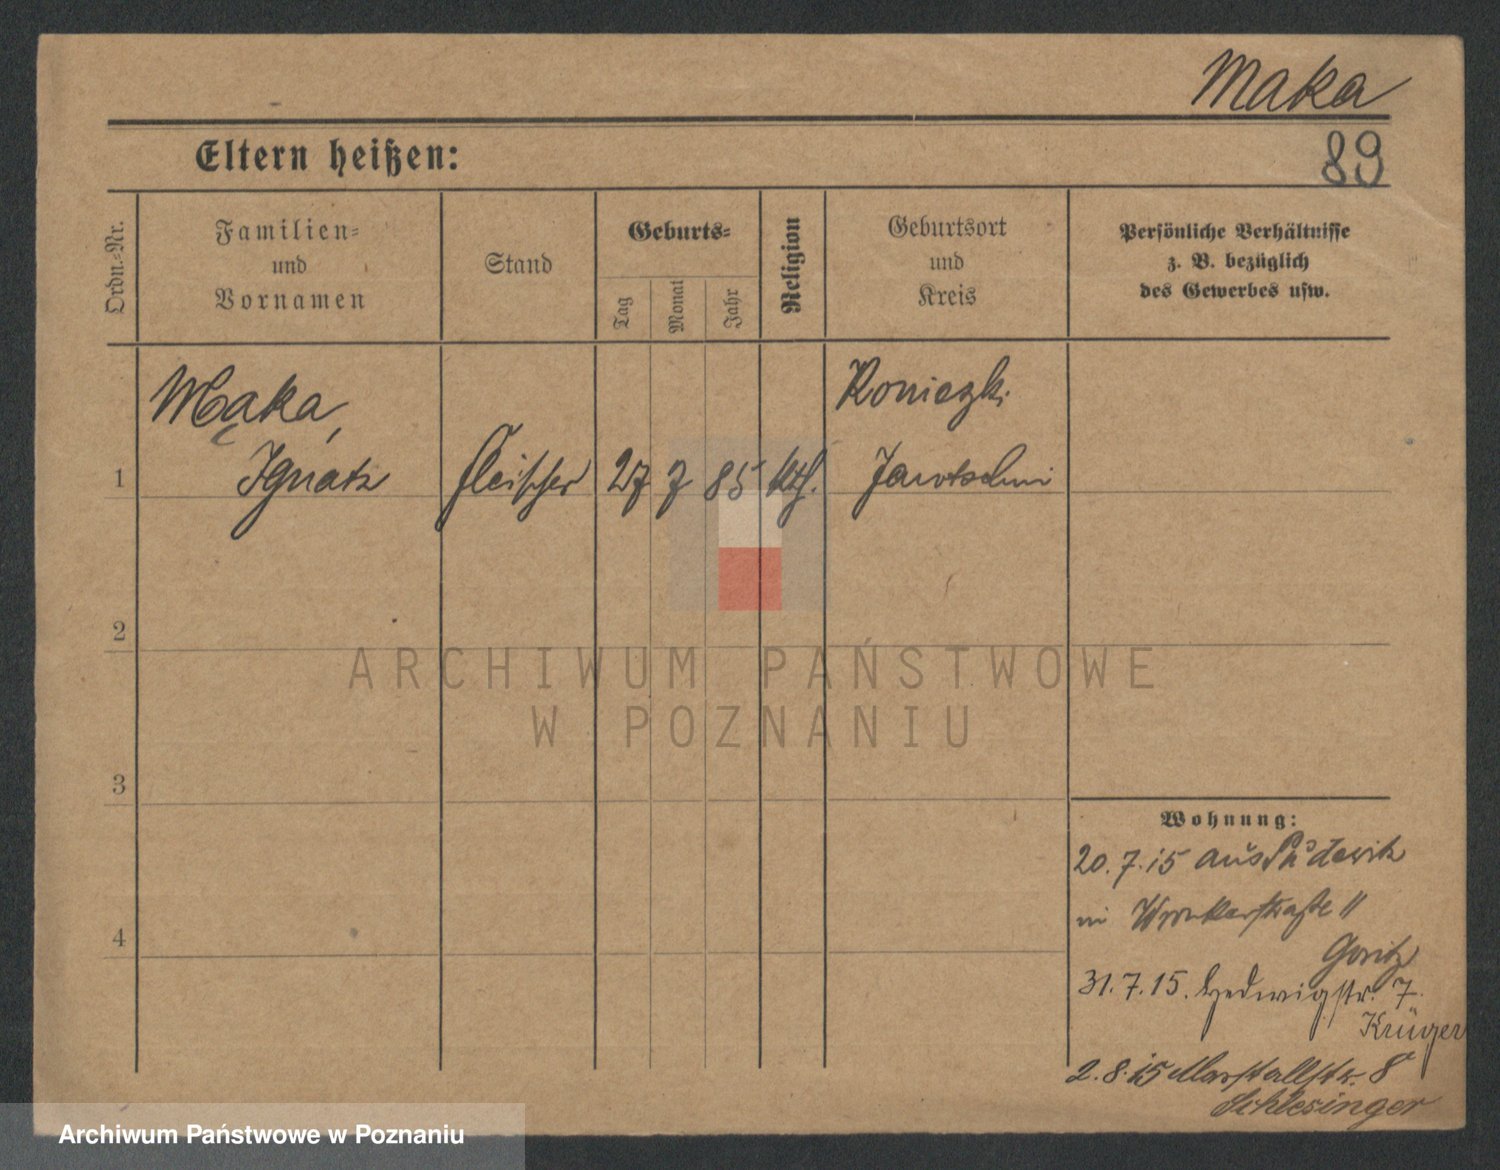 Maka
89
Eltern heißen:
Ordn.-Nr.
Familien-
und
Vornamen
Stand
Geburts-
Tag
Monat
Jahr
Religion
Geburtsort
und
Kreis
Persönliche Verhältnisse
z. B. bezüglich
des Gewerbes usw.
Mąka,
Koniczki
1
Ignatz
Fleischer
27
7
85
kth.
Jarotschin
2
ARCHIWUM PAŃSTWOWE
W POZNANIU
3
Wohnung:
20. 7. 15 aus Pudewitz
in Wronkerstraße 11
4
Goritz
31. 7. 15. Hedwigstr. 7.
Krüger
2. 8. 15 Marstallstr. 8
Schlesinger
Archiwum Państwowe w Poznaniu